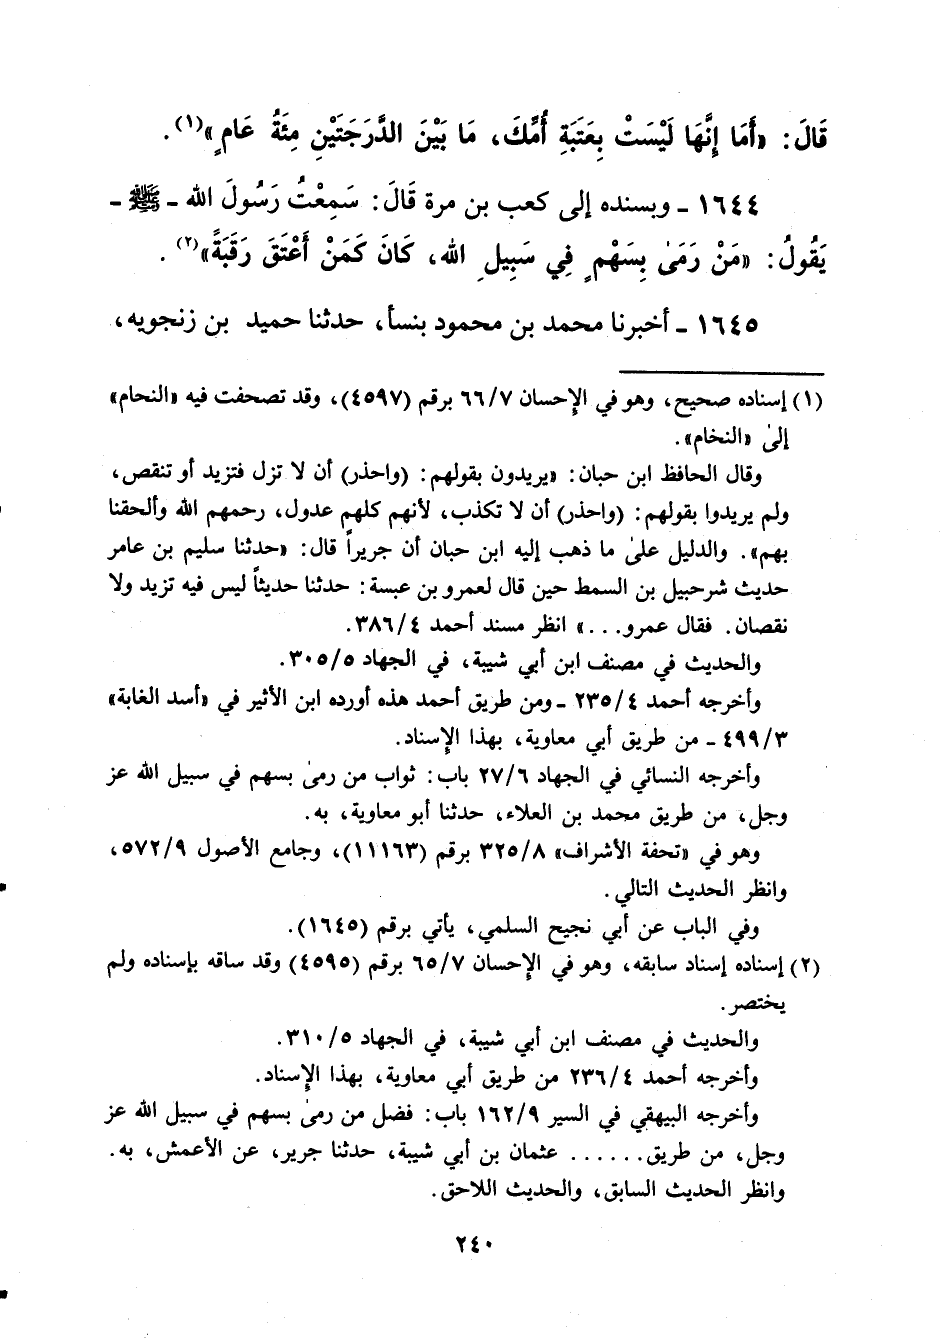 قَالَ: «أَمَا إِنَّهَا لَيْسَتْ بِعَتَبَةِ أُمِّكَ، مَا بَيْنَ الدَّرَجَتَيْنِ مِئَةُ عَامٍ»(١).
١٦٤٤ ـ وبسنده إلى كعب بن مرة قَالَ: سَمِعْتُ رَسُولَ الله ـ ﷺ ـ
يَقُولُ: «مَنْ رَمَىٰ بِسَهْمٍ فِي سَبِيلِ الله، كَانَ كَمَنْ أَعْتَقَ رَقَبَةً»(٢).
١٦٤٥ ـ أخبرنا محمد بن محمود بنسأ، حدثنا حميد بن زنجويه،
(١) إسناده صحيح، وهو في الإحسان ٦٦/٧ برقم (٤٥٩٧)، وقد تصحفت فيه «النحام»
إلىٰ «النخام».
وقال الحافظ ابن حبان: «يريدون بقولهم: (واحذر) أن لا تزل فتزيد أو تنقص،
ولم يريدوا بقولهم: (واحذر) أن لا تكذب، لأنهم كلهم عدول، رحمهم الله وألحقنا
بهم». والدليل علىٰ ما ذهب إليه ابن حبان أن جريراً قال: «حدثنا سليم بن عامر
حديث شرحبيل بن السمط حين قال لعمرو بن عبسة: حدثنا حديثاً ليس فيه تزيد ولا
نقصان. فقال عمرو...» انظر مسند أحمد ٣٨٦/٤.
والحديث في مصنف ابن أبي شيبة، في الجهاد ٣٠٥/٥.
وأخرجه أحمد ٢٣٥/٤ ـ ومن طريق أحمد هذه أورده ابن الأثير في «أسد الغابة»
٤٩٩/٣ ـ من طريق أبي معاوية، بهذا الإسناد.
وأخرجه النسائي في الجهاد ٢٧/٦ باب: ثواب من رمىٰ بسهم في سبيل الله عز
وجل، من طريق محمد بن العلاء، حدثنا أبو معاوية، به.
وهو في «تحفة الأشراف» ٣٢٥/٨ برقم (١١١٦٣)، وجامع الأصول ٥٧٢/٩،
وانظر الحديث التالي.
وفي الباب عن أبي نجيح السلمي، يأتي برقم (١٦٤٥).
(٢) إسناده إسناد سابقه، وهو في الإحسان ٦٥/٧ برقم (٤٥٩٥) وقد ساقه بإسناده ولم
يختصر.
والحديث في مصنف ابن أبي شيبة، في الجهاد ٣١٠/٥.
وأخرجه أحمد ٢٣٦/٤ من طريق أبي معاوية، بهذا الإسناد.
وأخرجه البيهقي في السير ١٦٢/٩ باب: فضل من رمىٰ بسهم في سبيل الله عز
وجل، من طريق...... عثمان بن أبي شيبة، حدثنا جرير، عن الأعمش، به.
وانظر الحديث السابق، والحديث اللاحق.
٢٤٠